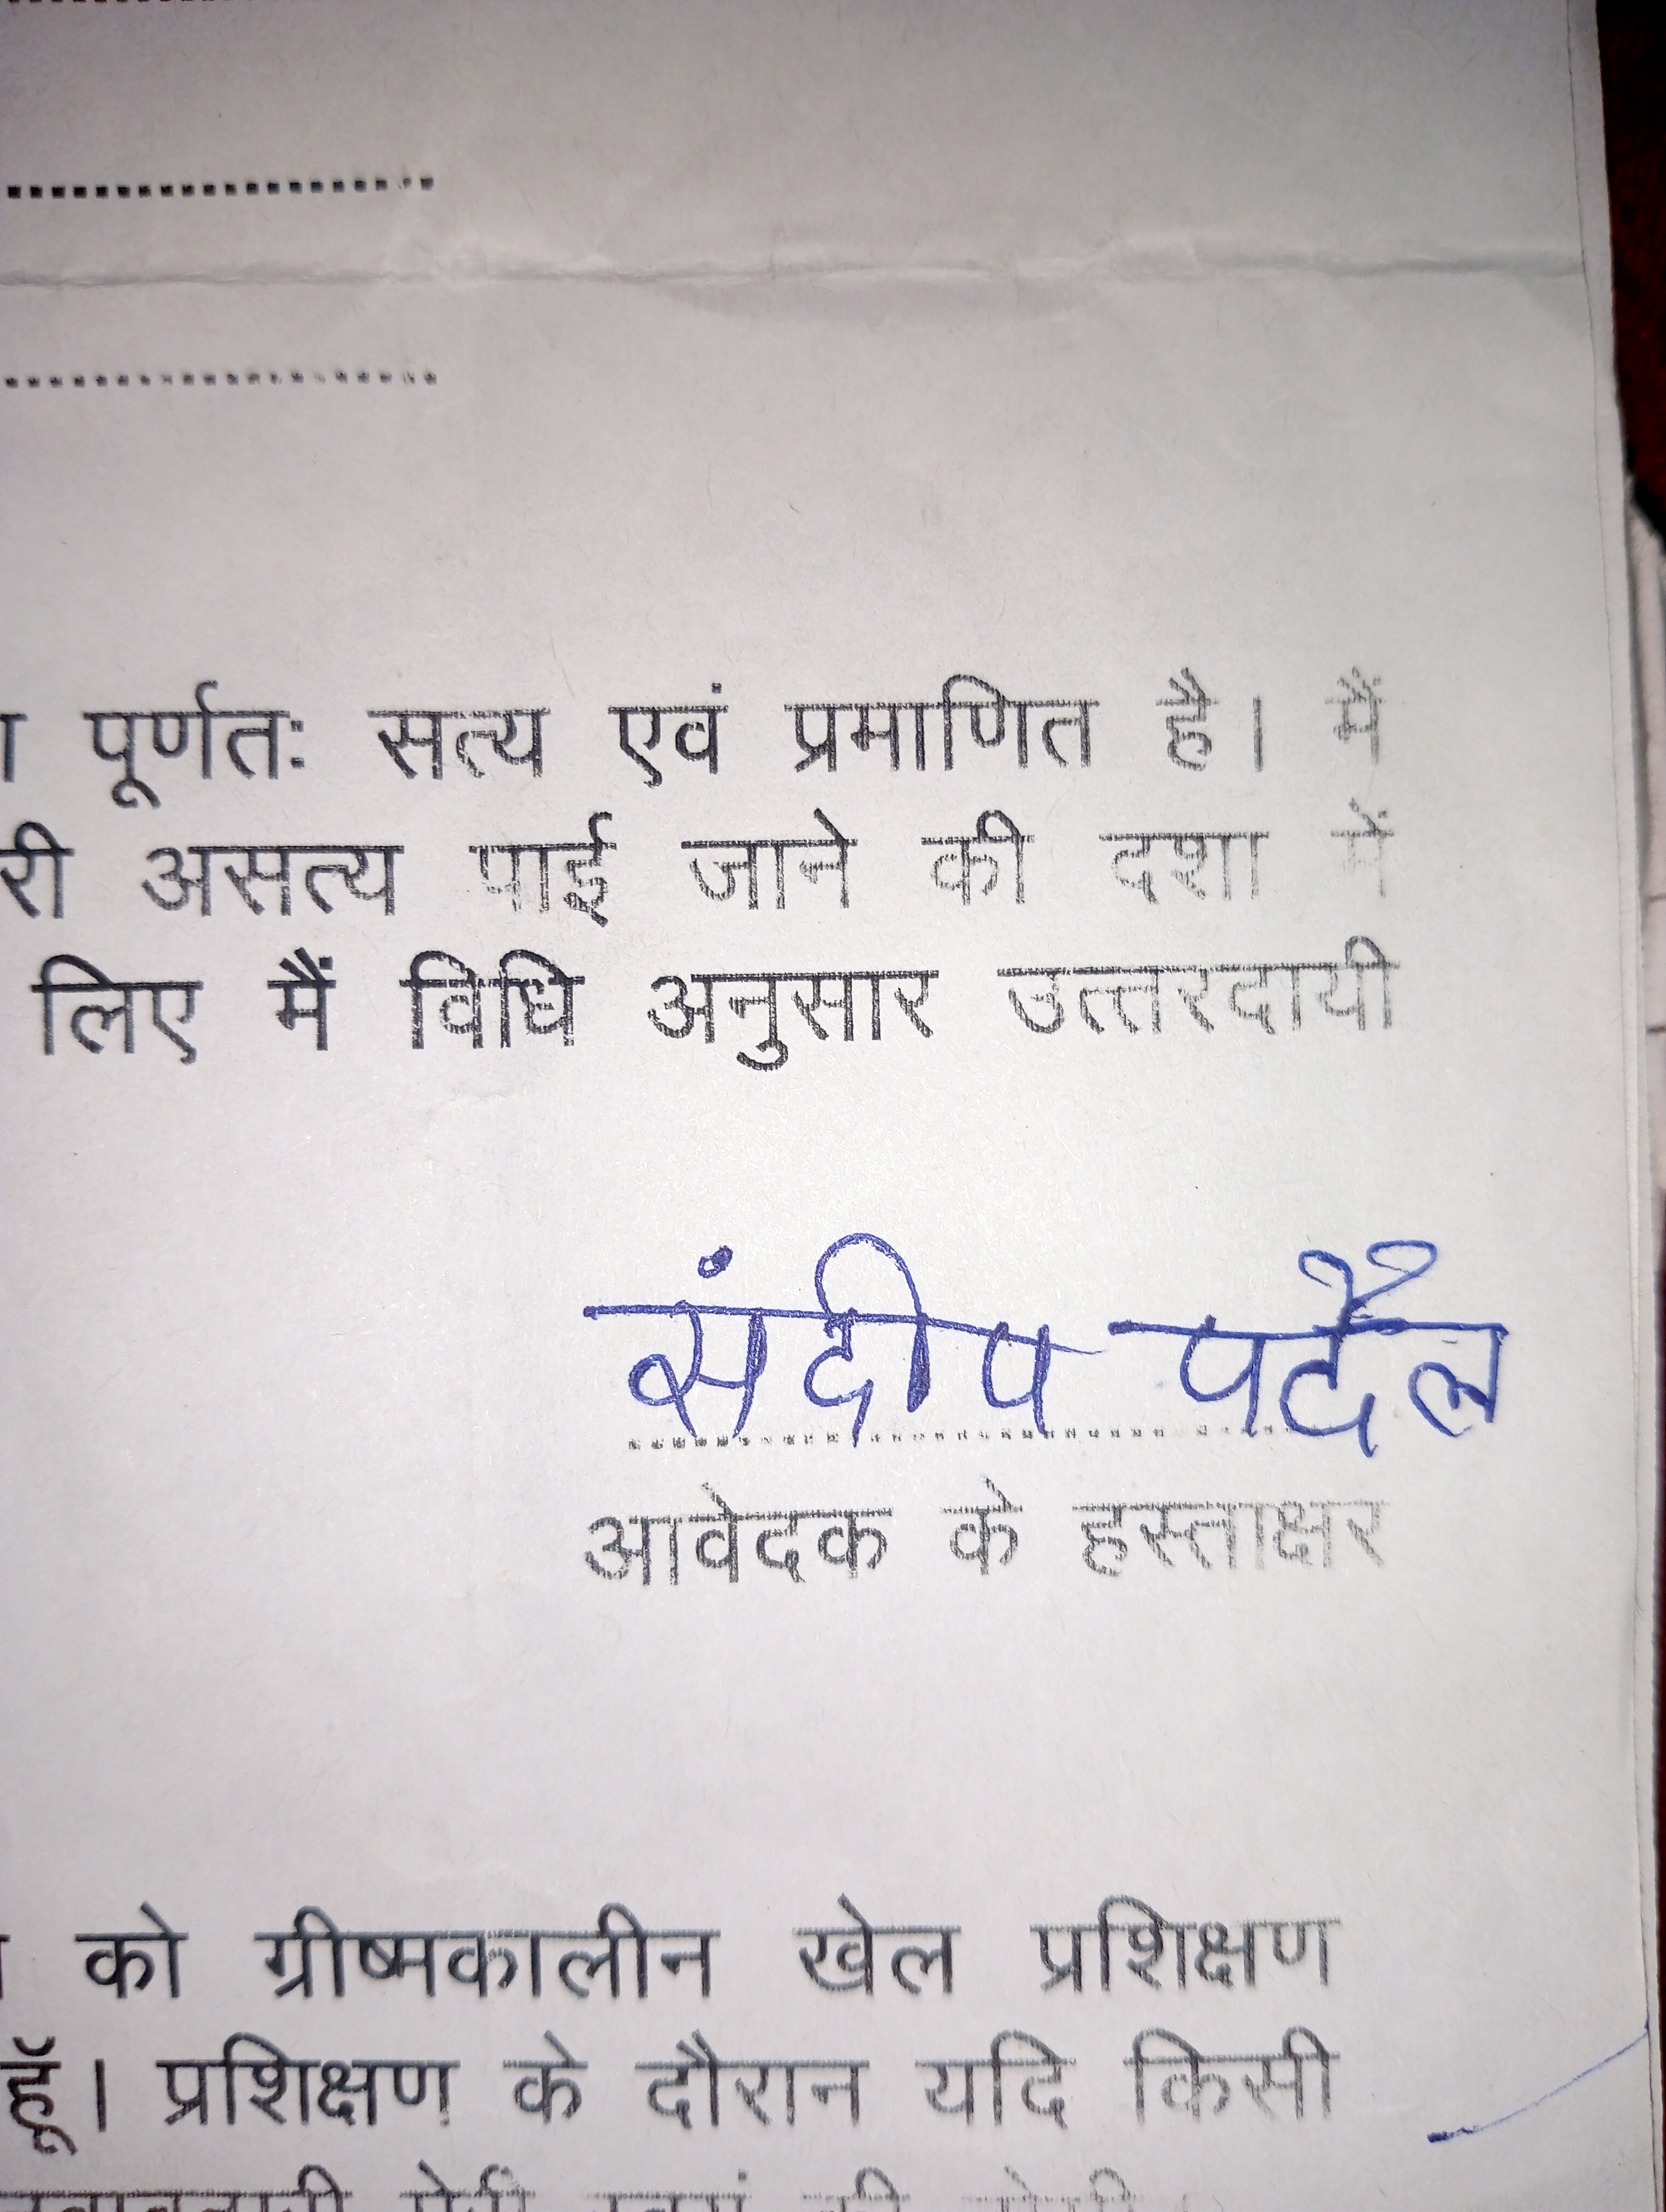 पूर्णतः सत्य एवं प्रमाणित है। मैं
री असत्य पाई जाने की दशा में
लिए मैं विधि अनुसार उत्तरदायी
संदीप पटैल
आवेदक के हस्ताक्षर
को ग्रीष्मकालीन खेल प्रशिक्षण
हूॅ। प्रशिक्षण के दौरान यदि किसी